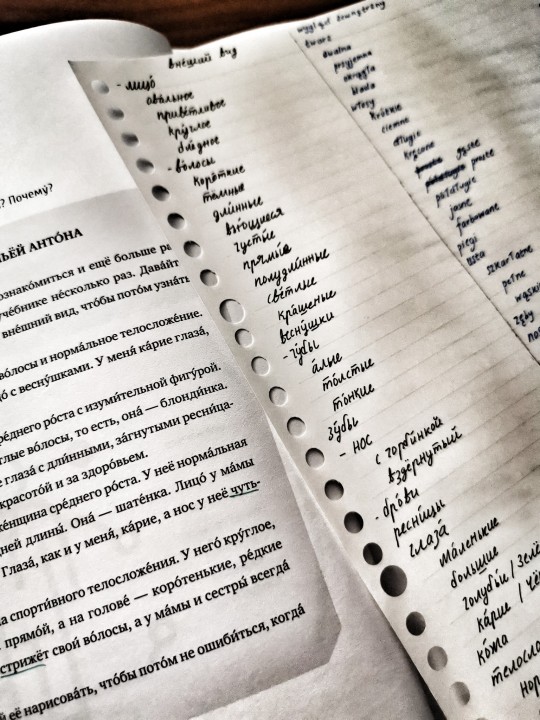 ? Почему́?
ЬЁЙ АНТО́НА
ознако́миться и ещё больше ра
уче́бнике не́сколько раз. Дава́йт
вне́шний вид, что́бы пото́м узна́ть
во́лосы и норма́льное телосложе́ние.
о́ с весну́шками. У меня́ ка́рие глаза́,
ре́днего ро́ста с изуми́тельной фигу́рой.
тлые во́лосы, то есть, она́ — блонди́нка.
е глаза́ с дли́нными, за́гнутыми ресни́ца-
красото́й и за здоро́вьем.
же́нщина сре́днего ро́ста. У неё норма́льная
дней длины́. Она́ — шате́нка. Лицо́ у ма́мы
Глаза́, как и у меня́, ка́рие, а нос у неё чуть-
а спорти́вного телосложе́ния. У него́ кру́глое,
прямо́й, а на голове́ — коро́тенькие, ре́дкие
стрижёт свой во́лосы, а у ма́мы и сестры́ всегда́
й её нарисова́ть, что́бы пото́м не ошиби́ться, когда́
вне́шний вид
- лицо́
ова́льное
приве́тливое
кру́глое
бле́дное
- во́лосы
коро́ткие
тёмные
дли́нные
вью́щиеся
густы́е
прямы́е
полудли́нные
све́тлые
кра́шеные
весну́шки
- гу́бы
а́лые
то́лстые
то́нкие
зу́бы
- нос
с горби́нкой
вздёрнутый
- бро́ви
ресни́цы
глаза́
ма́ленькие
больши́е
голубы́е / зелё
ка́рие / чё
ко́жа
телосло
нор
wygląd zewnętrzny
twarz
owalna
przyjemna
okrągła
blada
włosy
krótkie
ciemne
długie
kręcone
gęste
proste
półdługie
jasne
farbowane
piegi
usta
szkarłatne
pełne
wąskie
zęby
nos